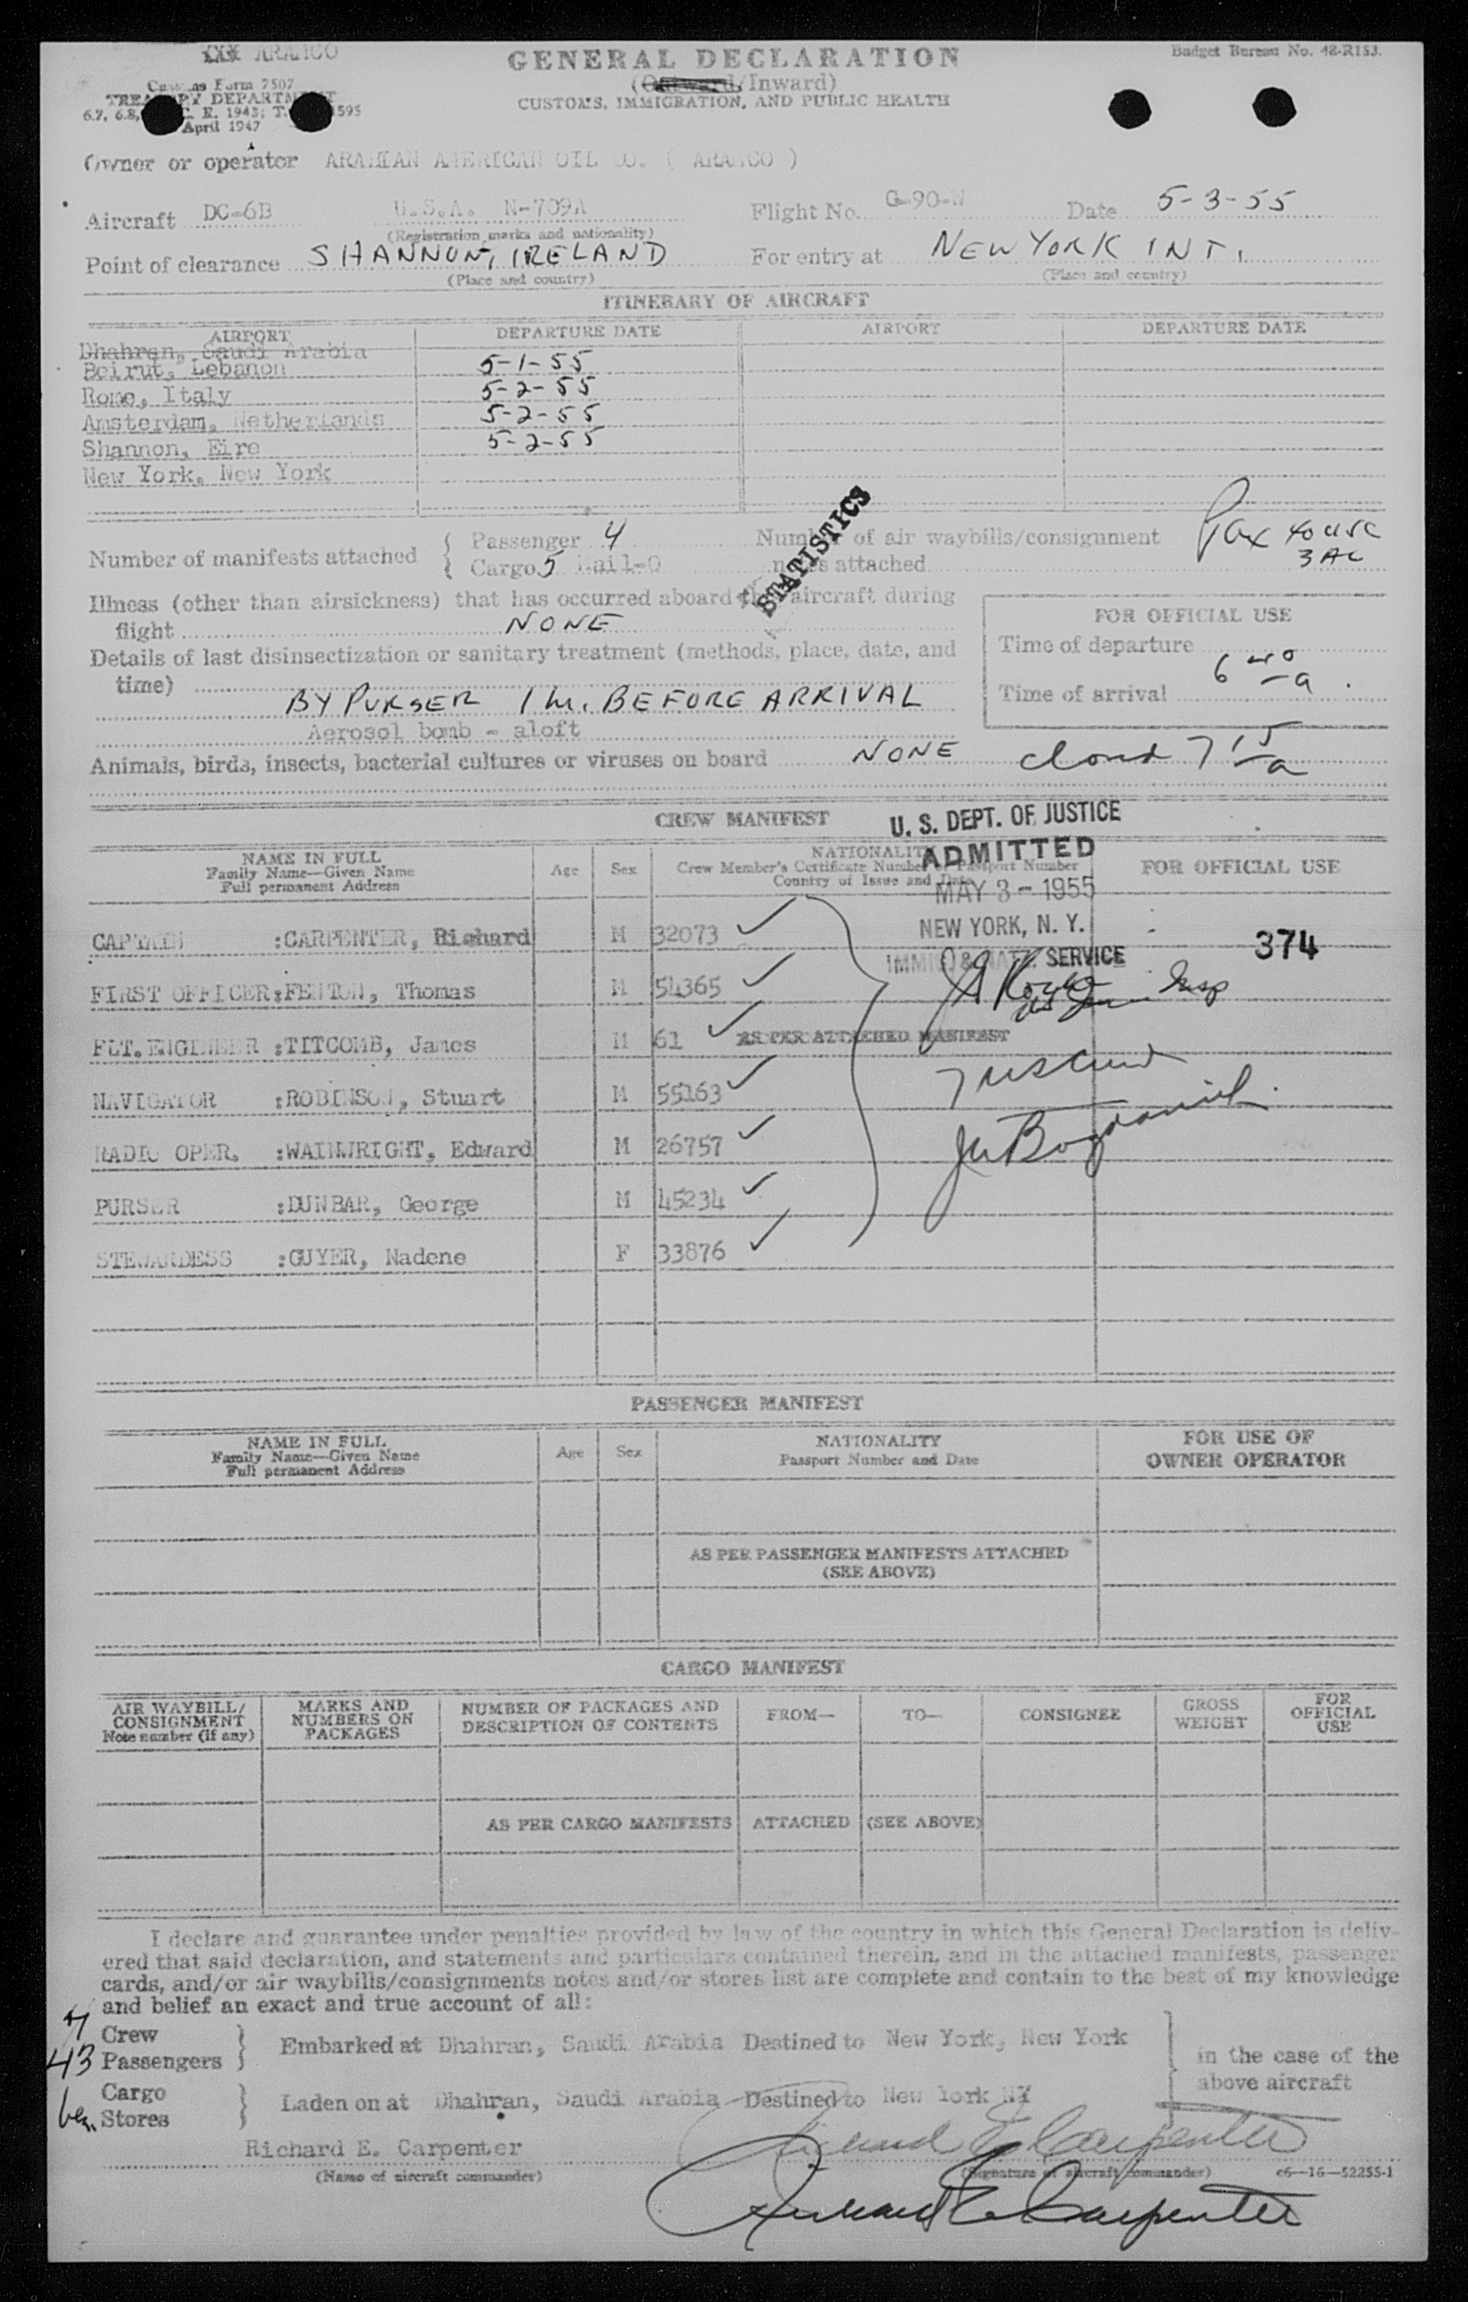 XXX ARAMCO
GENERAL DECLARATION
Budget Bureau No. 48-R153.
Customs Form 7507
(Outward/Inward)
TREASURY DEPARTMENT
CUSTOMS, IMMIGRATION, AND PUBLIC HEALTH
6.7, 6.8, C. R. 1943; T. 595
April 1947
Owner or operator ARABIAN AMERICAN OIL CO. ( ARAMCO )
Aircraft DC-6B U.S.A. N-709A Flight No. G-90-W Date 5-3-55
(Registration marks and nationality)
Point of clearance SHANNON, IRELAND For entry at NEW YORK INT.
(Place and country) (Place and country)
ITINERARY OF AIRCRAFT
AIRPORT DEPARTURE DATE AIRPORT DEPARTURE DATE
Dhahran, Saudi Arabia
Beirut, Lebanon 5-1-55
Rome, Italy 5-2-55
Amsterdam, Netherlands 5-2-55
Shannon, Eire 5-2-55
New York, New York
STATISTICS
Number of manifests attached { Passenger 4 Number of air waybills/consignment
Cargo 5 Mail-0 notes attached
3 AC
Illness (other than airsickness) that has occurred aboard the aircraft during
flight NONE
FOR OFFICIAL USE
Details of last disinsectization or sanitary treatment (methods, place, date, and
time)
Time of departure
Time of arrival 6 40 a.
BY PURSER 1 hr. BEFORE ARRIVAL
Aerosol bomb - aloft
Animals, birds, insects, bacterial cultures or viruses on board NONE
7 15 a
CREW MANIFEST
U. S. DEPT. OF JUSTICE
ADMITTED
MAY 3 - 1955
NEW YORK, N. Y.
IMMIG. & NATZ. SERVICE
NAME IN FULL
Family Name—Given Name
Full permanent Address
Age Sex
NATIONALITY
Crew Member's Certificate Number or Passport Number
Country of Issue and Date
FOR OFFICIAL USE
CAPTAIN :CARPENTER, Richard M 32073
374
FIRST OFFICER:FENTON, Thomas M 54365
Insp
FLT. ENGINEER :TITCOMB, James M 61 AS PER ATTACHED MANIFEST
NAVIGATOR :ROBINSON, Stuart M 55163
RADIO OPER. :WAINWRIGHT, Edward M 26757
PURSER :DUNBAR, George M 45234
STEWARDESS :GUYER, Nadene F 33876
PASSENGER MANIFEST
NAME IN FULL
Family Name—Given Name
Full permanent Address
Age Sex
NATIONALITY
Passport Number and Date
FOR USE OF
OWNER OPERATOR
AS PER PASSENGER MANIFESTS ATTACHED
(SEE ABOVE)
CARGO MANIFEST
AIR WAYBILL/
CONSIGNMENT
Note number (if any)
MARKS AND
NUMBERS ON
PACKAGES
NUMBER OF PACKAGES AND
DESCRIPTION OF CONTENTS
FROM— TO— CONSIGNEE
GROSS
WEIGHT
FOR
OFFICIAL
USE
AS PER CARGO MANIFESTS ATTACHED (SEE ABOVE)
I declare and guarantee under penalties provided by law of the country in which this General Declaration is deliv-
ered that said declaration, and statements and particulars contained therein, and in the attached manifests, passenger
cards, and/or air waybills/consignments notes and/or stores list are complete and contain to the best of my knowledge
and belief an exact and true account of all:
7 Crew
43 Passengers } Embarked at Dhahran, Saudi Arabia Destined to New York, New York
in the case of the
above aircraft
Cargo
Stores } Laden on at Dhahran, Saudi Arabia Destined to New York NY
Richard E. Carpenter Richard E Carpenter
(Name of aircraft commander) (Signature of aircraft commander) c6—16—52255-1
Richard E Carpenter